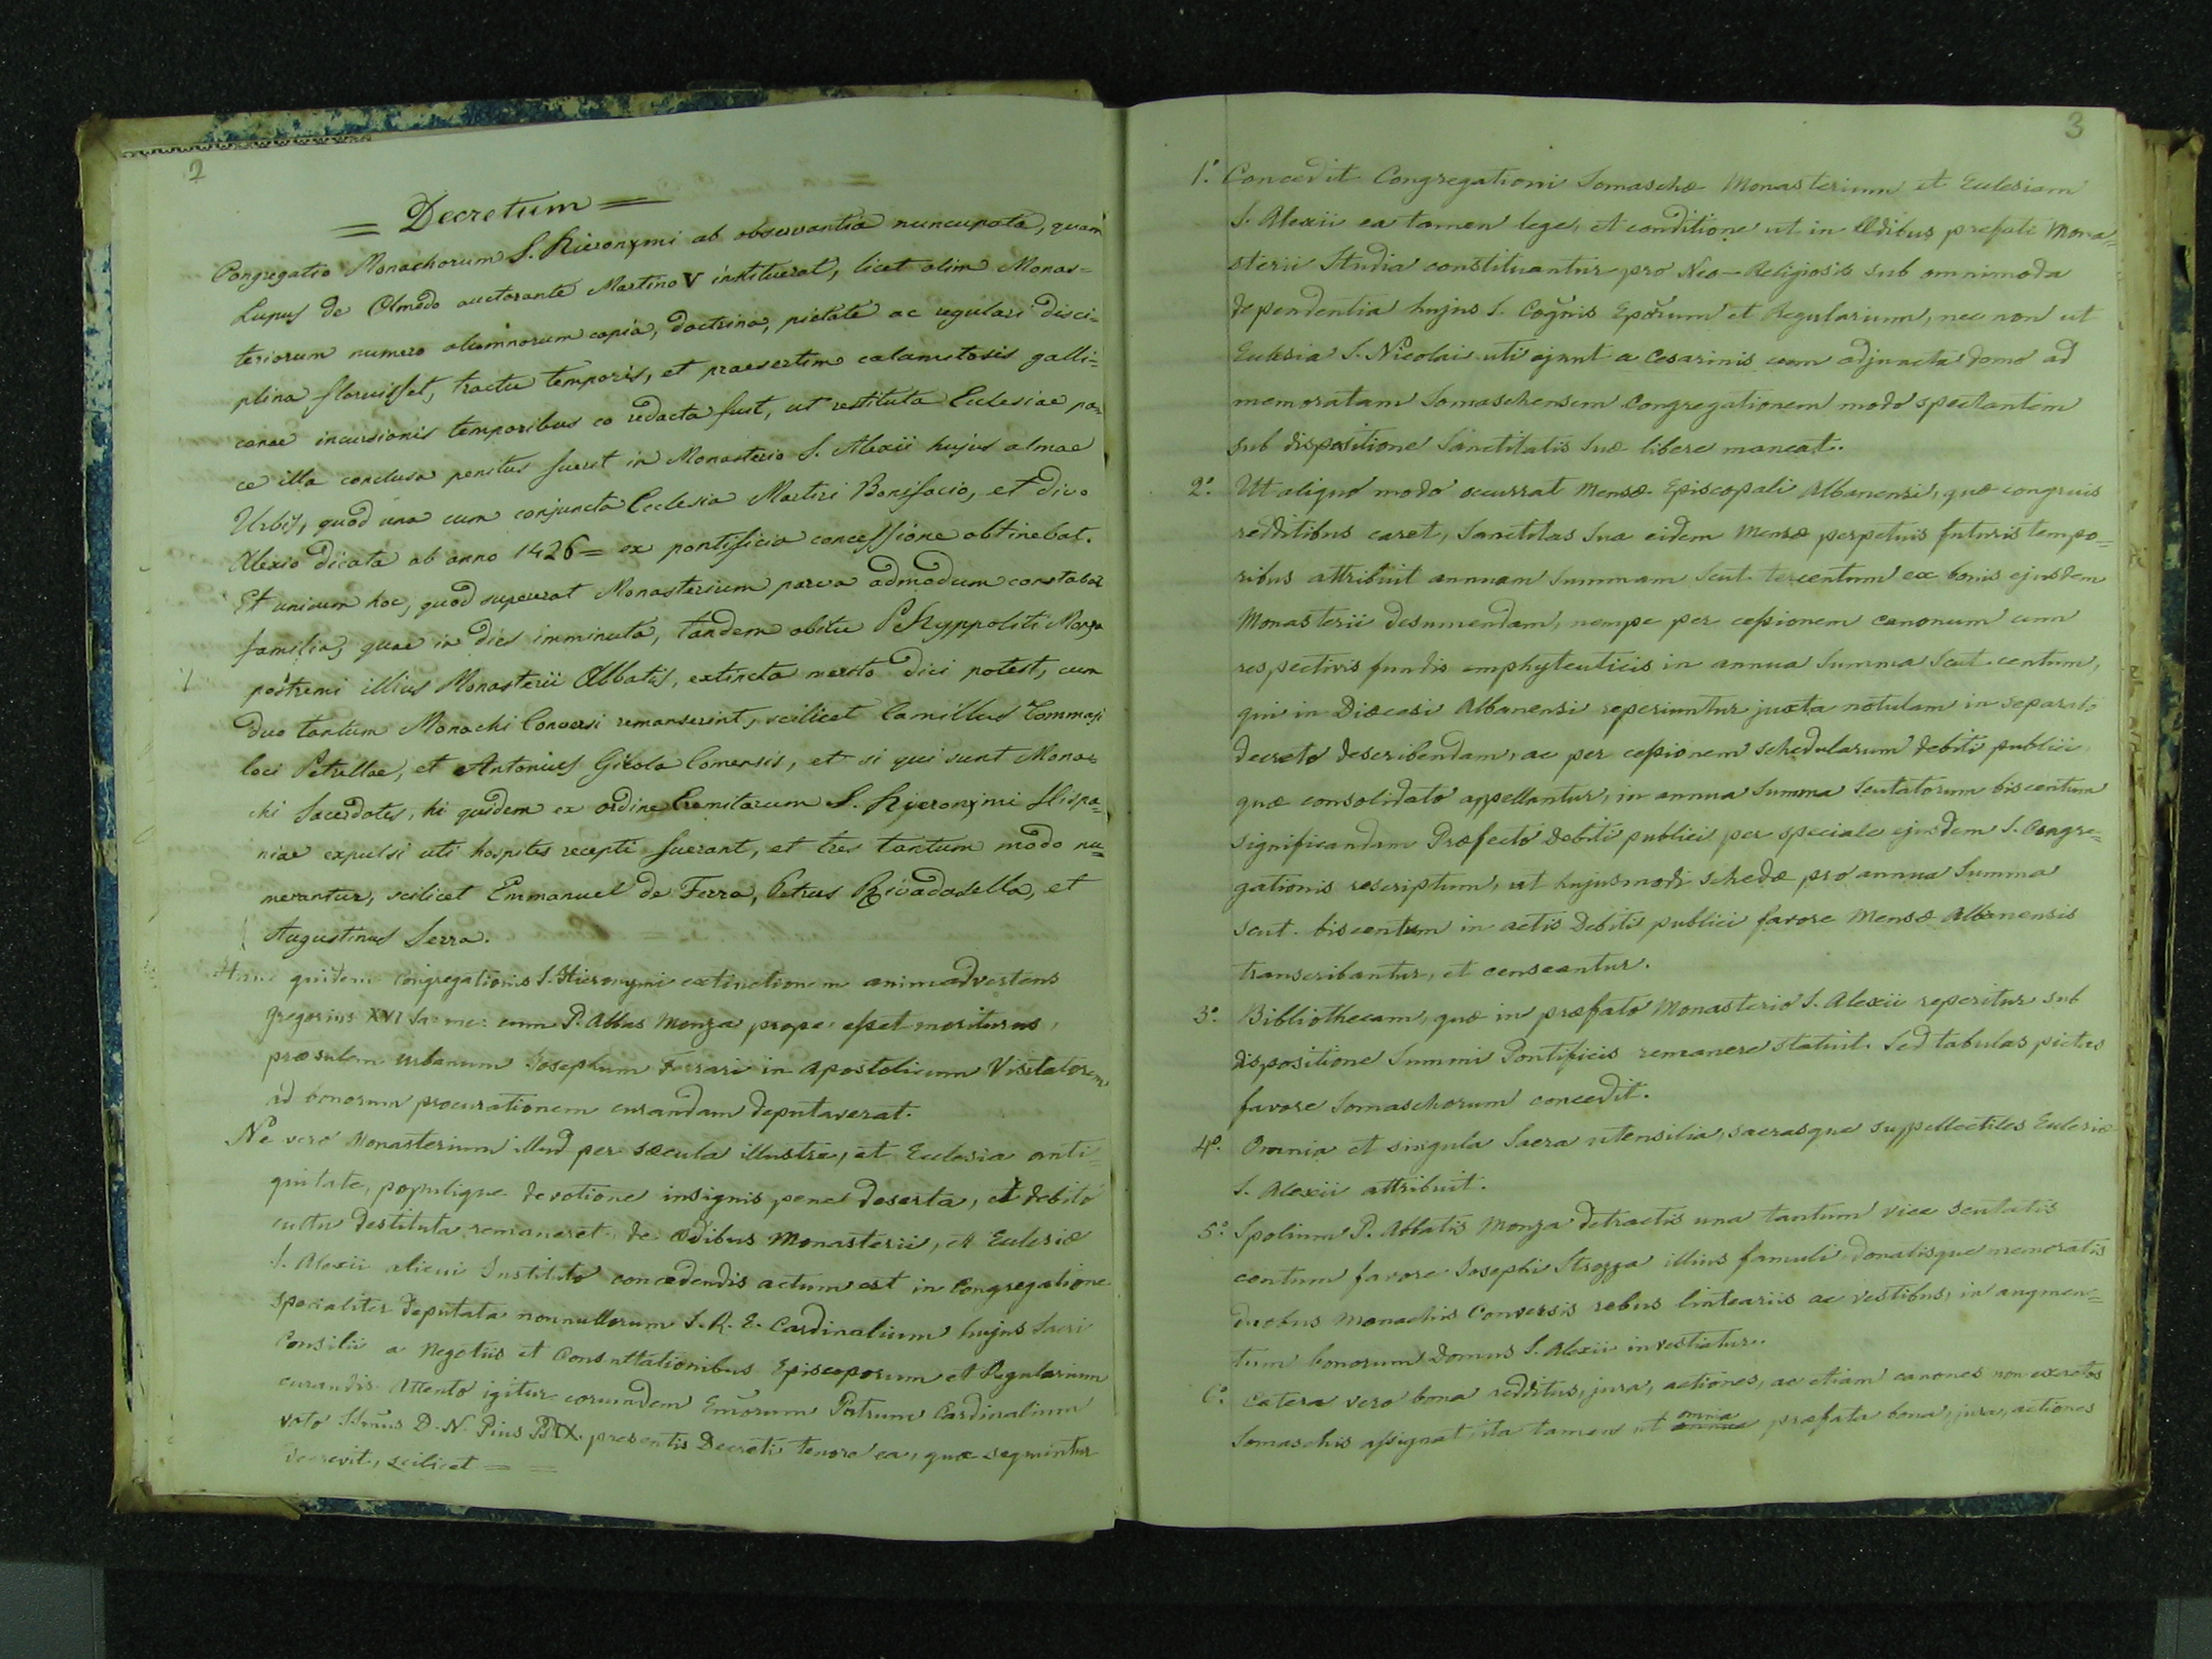 2
= Decretum =
Congregatio Monachorum S. Hieronymi ab observantia nuncupata, quam
Lupus de Olmedo auctorante Martino V instituerat, licet olim Monas=
teriorum numero alumnorum copia, doctrina, pietate ac regulari disci=
plina floruisset, tractu temporis, et praesertim calamitosis galli=
canae incursionis temporibus eo redacta fuit, ut restituta Ecclesiae pa=
ce illa conclusa penitus fuerit in Monasterio S. Alexii hujus almae
Urbis, quod una cum conjuncta Ecclesia Martiri Bonifacio, et divo
Alexio dicata ab anno 1426= ex pontificia concessione obtinebat.
Et unicum hoc, quod supererat Monasterium parva admodum constabat
familia, quae in dies imminuta, tandem obitu P. Hyppoliti Monza
postremi illius Monasterii Abbatis, extincta merito dici potest, cum
duo tantum Monachi Conversi remanserint, scilicet Camillus Tommasi
loci Petrellae, et Antonius Gicola Comensis, et si qui sunt Mona=
chi Sacerdotes, hi quidem ex ordine Eremitarum S. Hyeronimi Hispa=
niae expulsi uti hospites recepti fuerant, et tres tantum modo nu=
merantur, scilicet Emmanuel de Ferra, Petrus Rivadasella, et
Augustinus Serra.
Hanc quidem Congregationis S. Hieronymi extinctionem animadvertens
Gregorius XVI Sa: me: cum P. Abbas Monza prope esset moriturus,
præsulem urbanum Josephum Ferrari in Apostolicum Visitatorem
ad bonorum procurationem curandam deputaverat.
Ne vero Monasterium illud per sæcula illustre, et Ecclesia anti=
quitate, populique devotione insignis pene deserta, et debito
cultu destituta remaneret de ædibus Monasterii, et Ecclesiæ
S. Alexii alicui Instituto concedendis actum est in Congregatione
specialiter deputata nonnullorum S. R. E. Cardinalium hujus Sacri
Consilii a Negotiis et Consultationibus Episcoporum et Regularium
curandis. Attento igitur eorumdem Emorum Patrum Cardinalium
voto SSmus D. N. Pius PP. IX. presentis Decreti tenore ea, quæ sequuntur
decrevit, scilicet = =
3
1.º Concedit Congregationi Somaschæ Monasterium et Ecclesiam
S. Alexii ea tamen lege, et conditione ut in Ædibus prefati Mona=
sterii Studia constituantur pro Neo-Religiosis sub omnimoda
dependentia hujus S. Cognis Eporum et Regularium, nec non ut
Ecclesia S. Nicolai uti ajunt a Cesarinis cum adjuncta domo ad
memoratam Somaschensem Congregationem modo spectantem
sub dispositione Sanctitatis Suæ libere maneat.
2.º Ut aliquo modo occurrat Mensæ Episcopali Albanensi, quæ congruis
redditibus caret, Sanctitas Sua eidem Mensæ perpetuis futuris tempo=
ribus attribuit annuam Summam Scut. tercentum ex bonis ejusdem
Monasterii desumendam, nempe per cessionem canonum cum
respectivis fundis emphyteuticis in annua Summa Scut. centum,
qui in Diæcesi Albanensi reperiuntur juxta notulam in separato
decreto describendam, ac per cessionem schedularum debiti publici
quæ consolidato appellantur, in annua Summa Scutatorum biscentum
significandam Præfecto Debiti publici per speciale ejusdem S. Congre=
gationis rescriptum, ut hujusmodi schedæ pro annua Summa
Scut. biscentum in actis Debiti publici favore Mensæ Albanensis
transcribantur, et censeantur.
3.º Bibliothecam, quæ in præfato Monasterio S. Alexii reperitur sub
dispositione Summi Pontificis remanere statuit. Sed tabulas pictas
favore Somaschorum concedit.
4.º Omnia et singula Sacra utensilia, sacrasque suppellectiles Ecclesiæ
S. Alexii attribuit.
5.º Spolium P. Abbatis Monza detractis una tantum vice scutatis
centum favore Josephi Strozza illius famuli, donatisque memoratis
duobus Monachis Conversis rebus linteariis ac vestibus, in augmen=
tum bonorum Domus S. Alexii investiatur.
6.º Cætera vero bona redditus, jura, actiones, ac etiam canones non exactos
Somaschis assignat, ita tamen ut omnia præfata bona, jura, actiones